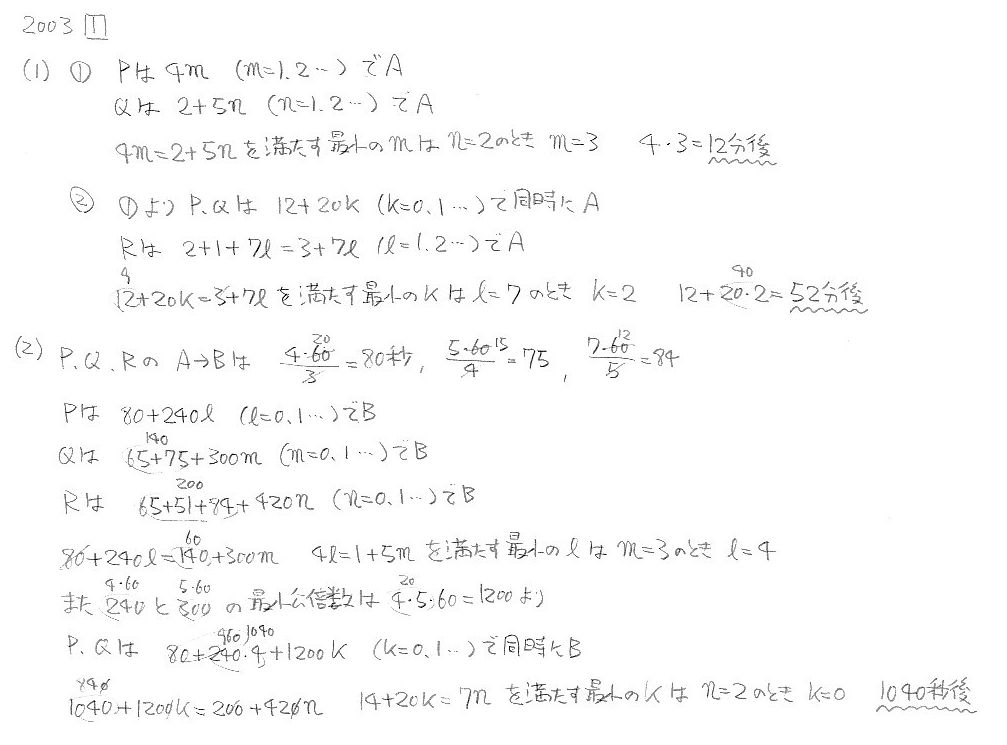 2003 1
(1) ① Pは 4m (m=1.2…) でA
Qは 2+5n (n=1.2…) でA
4m=2+5n を満たす最小のmは n=2のとき m=3 4・3=12分後
② ①より P.Qは 12+20k (k=0.1…) で同時にA
Rは 2+1+7ℓ=3+7ℓ (ℓ=1.2…) でA
9 40
12+20k=3+7ℓ を満たす最小のkは ℓ=7のとき k=2 12+20・2=52分後
20 15 12
(2) P.Q.Rの A→Bは 4・60/3=80秒, 5・60/4=75, 7・60/5=84
Pは 80+240ℓ (ℓ=0.1…) でB
140
Qは 65+75+300m (m=0.1…) でB
200
Rは 65+51+84+420n (n=0.1…) でB
60
80+240ℓ=140+300m 4ℓ=1+5m を満たす最小のℓは m=3のとき ℓ=4
4・60 5・60 20
また 240と300の最小公倍数は 4・5・60=1200より
960 1040
P.Qは 80+240・4+1200k (k=0.1…) で同時にB
840
1040+1200k=200+420n 14+20k=7n を満たす最小のkは n=2のとき k=0 1040秒後